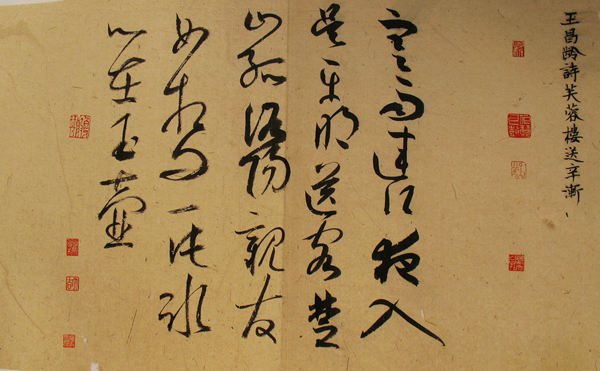 王昌齡詩芙蓉樓送辛漸
寒雨連江夜入
吳平明送客楚
山孤洛陽親友
如相問一片冰
心在玉壺